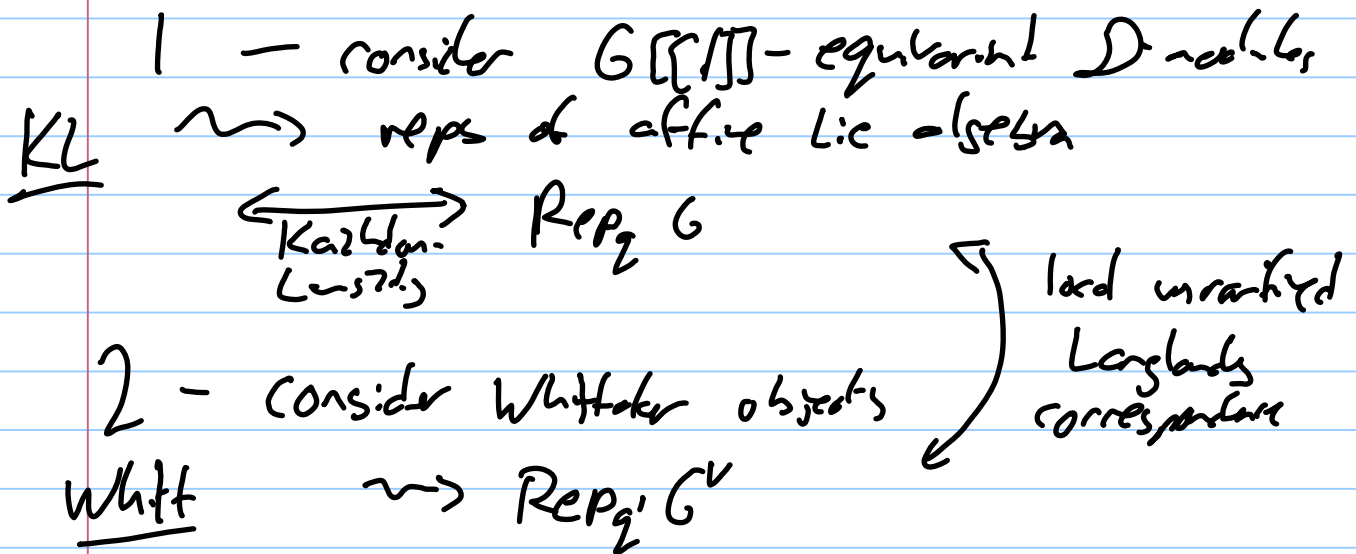 1 – consider G[[t]]-equivariant D-modules
KL ⇝ reps of affine Lie algebra
⟷ Rep_q G
Kazhdan-
Lusztig
local unramified
Langlands
correspondence
2 – consider Whittaker objects
Whitt ⇝ Rep_q' G^∨